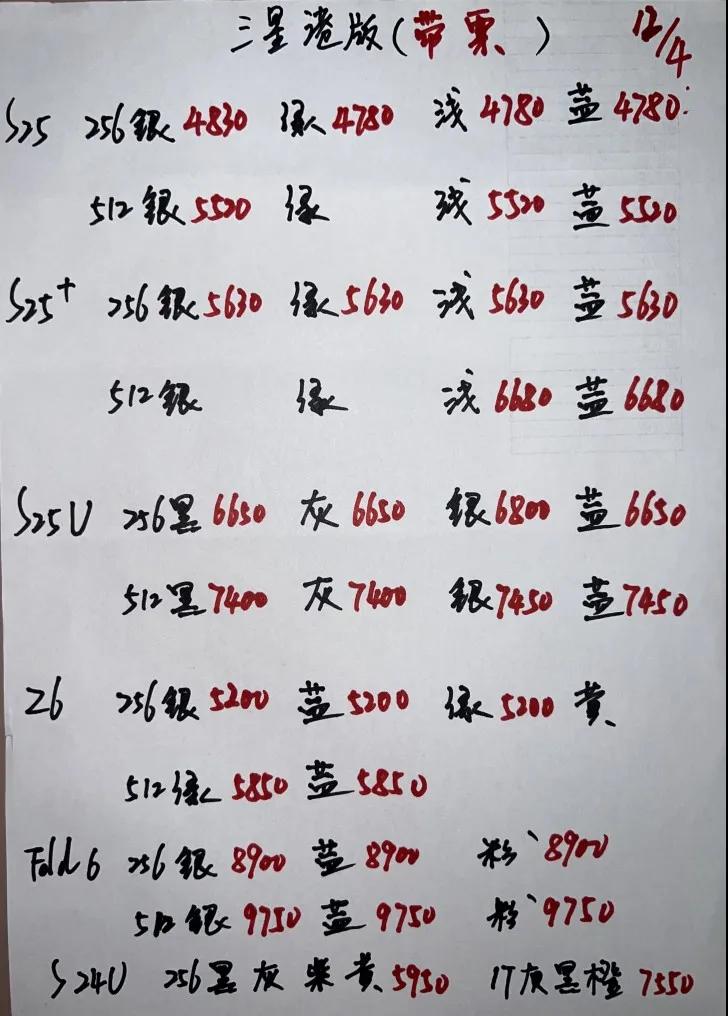 三星港版(带票) 12/4
S25 256銀4830 绿4780 浅4780 蓝4780
512銀5520 绿 浅5520 蓝5520
S25+ 256銀5630 绿5630 浅5630 蓝5630
512銀 绿 浅6680 蓝6680
S25U 256黑6650 灰6650 銀6800 蓝6650
512黑7400 灰7400 銀7450 蓝7450
Z6 256銀5200 蓝5200 绿5200 黄
512绿5850 蓝5850
Fold6 256銀8900 蓝8900 粉8900
512銀9750 蓝9750 粉9750
S24U 256黑灰紫黄5950 1T灰黑橙7550